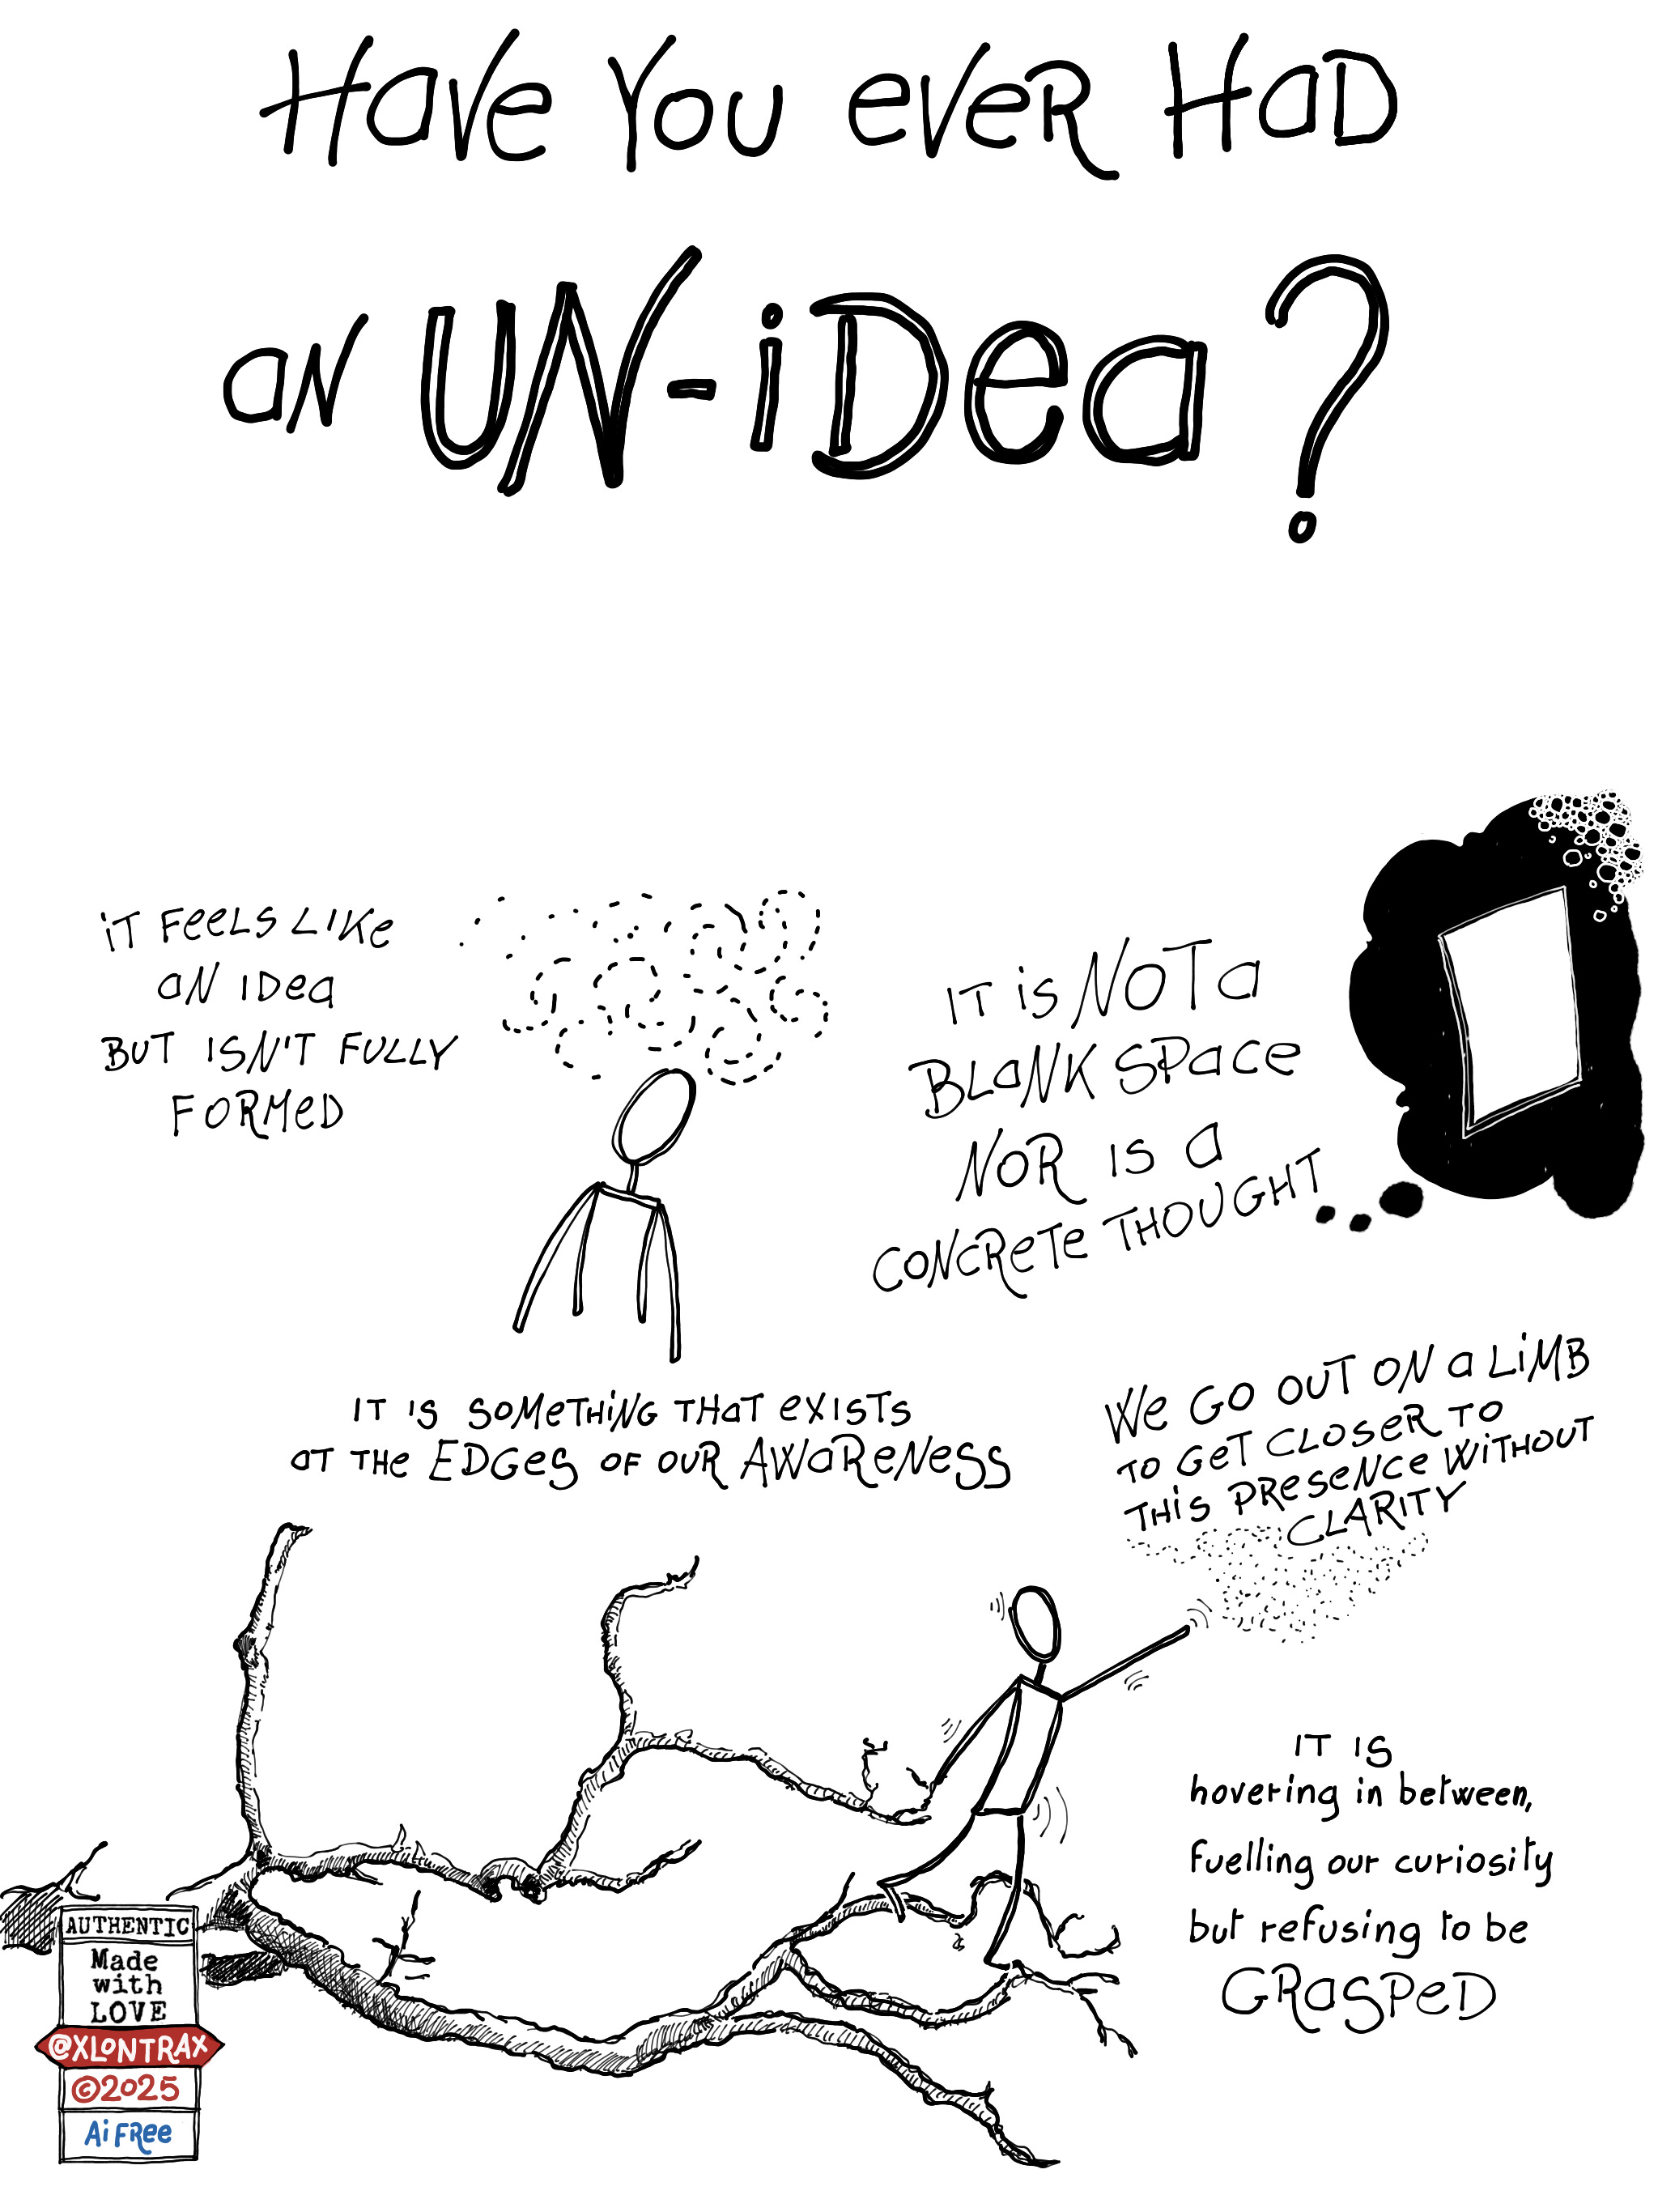 Have You ever Had
an UN-iDea?
iT Feels Like
an iDea
BUT ISN'T FULLY
FORMeD
IT is NOT a
BLaNK SPace
NOR IS a
CONCReTe THOUGHT
IT is SOMeTHiNG THaT exisTs
aT THe EDGes OF OUR AWaReNess
We GO OUT ON a LiMB
TO GeT CLOSeR TO
THis PReseNce WiTHOUT
CLARITY
IT IS
hovering in between,
fuelling our curiosity
but refusing to be
GRaSPeD
AUTHENTIC
Made
with
LOVE
@XLONTRAX
©2025
Ai FRee